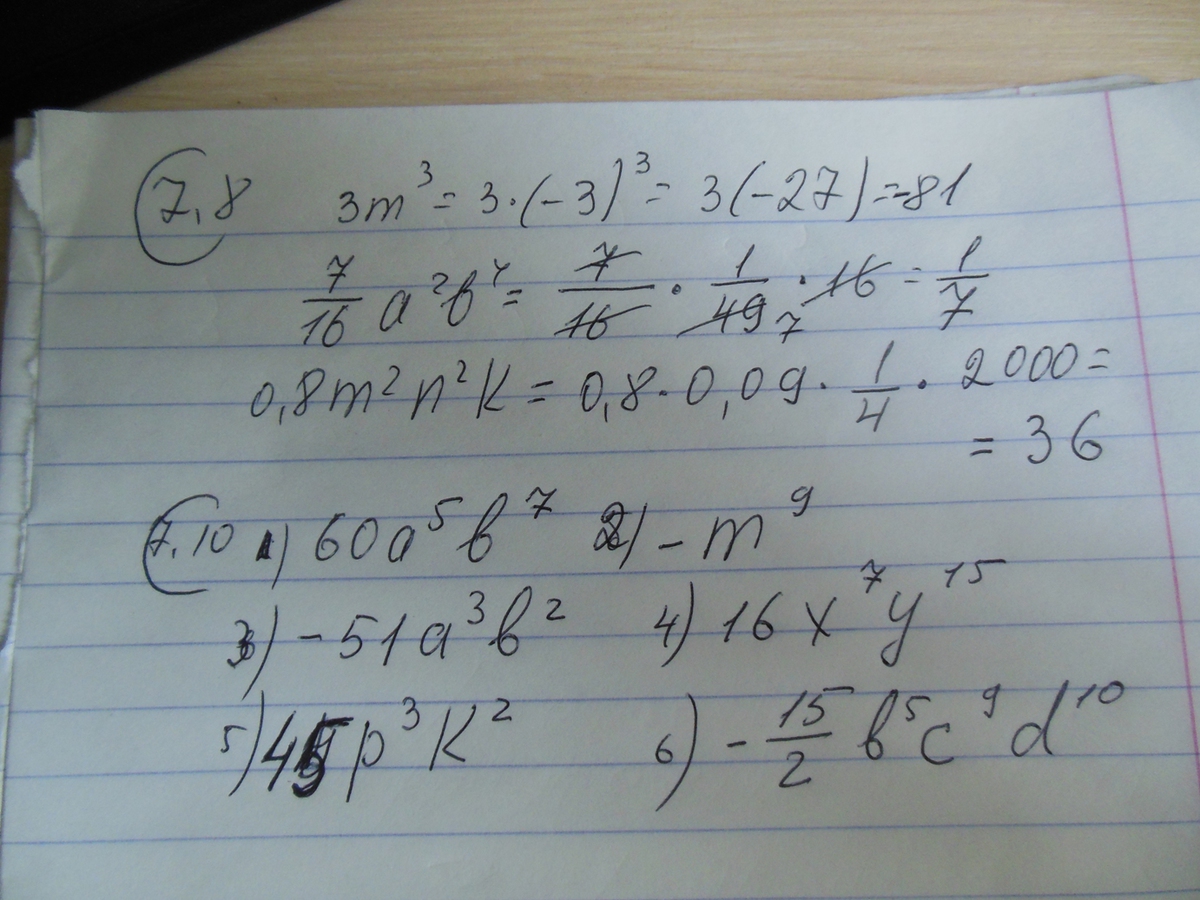 7,8 3m³ = 3·(-3)³ = 3(-27) = -81
7/16 a²b⁴ = 7/16 · 1/49 7 · 16 = 1/7
0,8m²n²k = 0,8·0,09·1/4·2000 =
= 36
7,10 1) 60a⁵b⁷ 2) -m⁹
3) -51a³b² 4) 16x⁷y¹⁵
5) 45p³k² 6) -15/2 b⁵c⁹d¹⁰